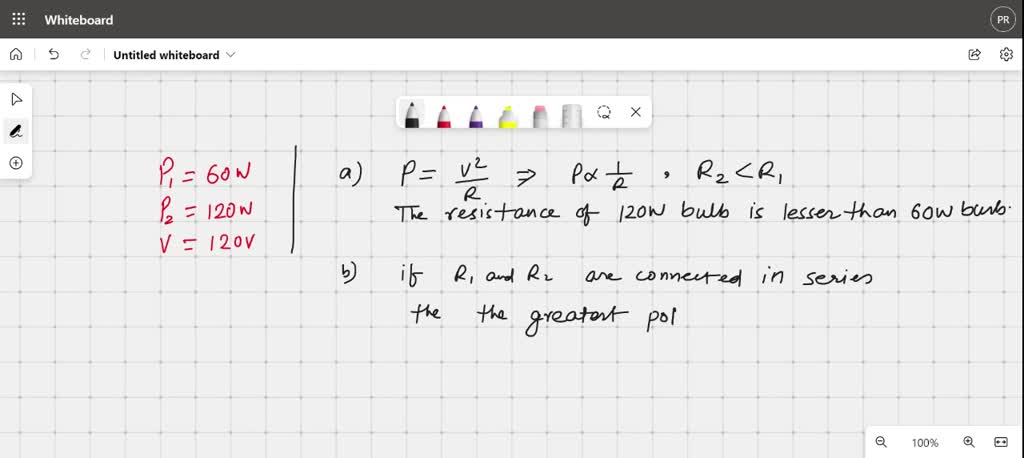 Whiteboard
PR
Untitled whiteboard
P₁ = 60W
P₂ = 120W
V = 120V
a) P = V²/R ⇒ P ∝ 1/R , R₂ < R₁
The resistance of 120W bulb is lesser than 60W
b) if R₁ and R₂ are connected in series
the the greatest pol
100%